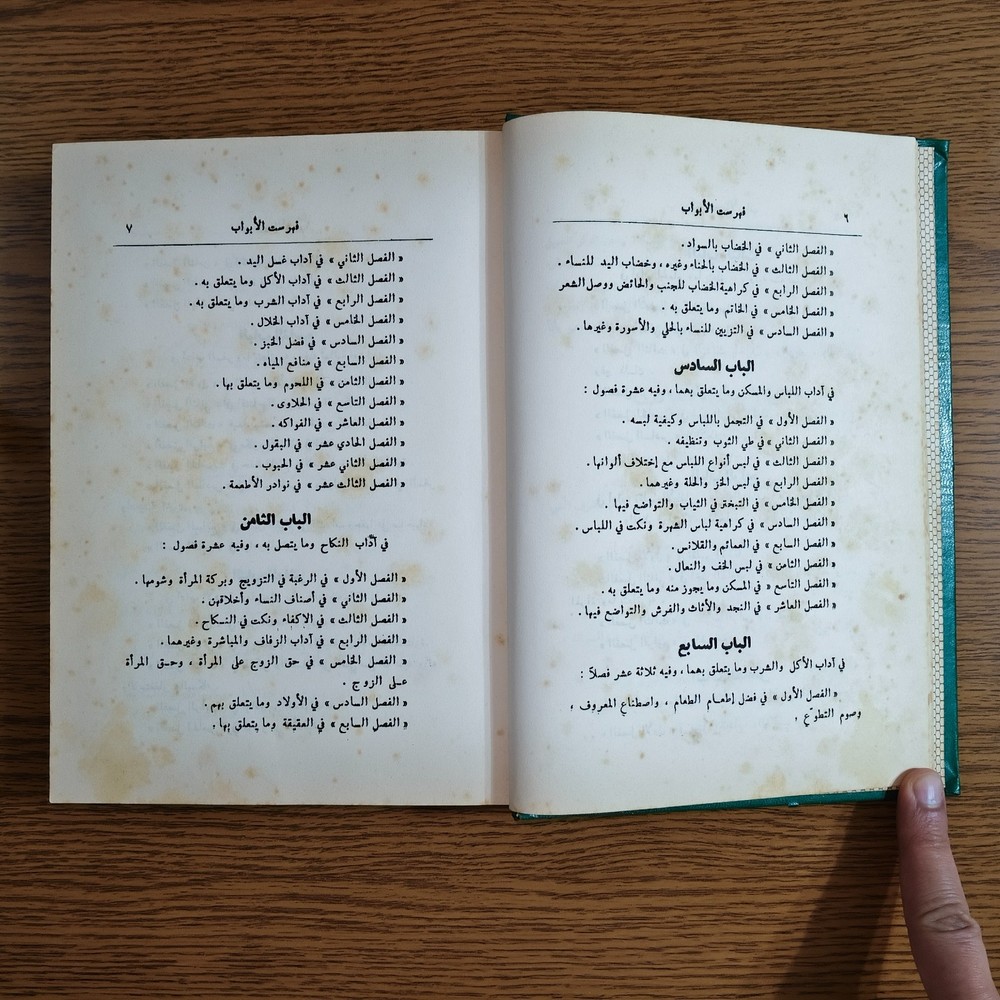 ٦
فهرست الأبواب
« الفصل الثاني » في الخضاب بالسواد .
« الفصل الثالث » في الخضاب بالحناء وغيره ، وخضاب اليد للنساء .
« الفصل الرابع » في كراهية الخضاب للجنب والحائض ووصل الشعر
« الفصل الخامس » في الخاتم وما يتعلق به .
« الفصل السادس » في التزيين للنساء بالحلي والأسورة وغيرها .
الباب السادس
في آداب اللباس والمسكن وما يتعلق بهما ، وفيه عشرة فصول :
« الفصل الأول » في التجمل باللباس وكيفية لبسه .
« الفصل الثاني » في طي الثوب وتنظيفه .
« الفصل الثالث » في لبس أنواع اللباس مع إختلاف ألوانها .
« الفصل الرابع » في لبس الخز والحلة وغيرهما .
« الفصل الخامس » في التبختر في الثياب والتواضع فيها .
« الفصل السادس » في كراهية لباس الشهرة ونكت في اللباس .
« الفصل السابع » في العمائم والقلانس .
« الفصل الثامن » في لبس الخف والنعال .
« الفصل التاسع » في المسكن وما يجوز منه وما يتعلق به .
« الفصل العاشر » في النجد والأثاث والفرش والتواضع فيها .
الباب السابع
في آداب الأكل والشرب وما يتعلق بهما ، وفيه ثلاثة عشر فصلاً :
« الفصل الأول » في فضل إطعام الطعام ، واصطناع المعروف ،
وصوم التطوّع .
فهرست الأبواب
٧
« الفصل الثاني » في آداب غسل اليد .
« الفصل الثالث » في آداب الأكل وما يتعلق به .
« الفصل الرابع » في آداب الشرب وما يتعلق به .
« الفصل الخامس » في آداب الخلال .
« الفصل السادس » في فضل الخبز .
« الفصل السابع » في منافع المياه .
« الفصل الثامن » في اللحوم وما يتعلق بها .
« الفصل التاسع » في الحلاوى .
« الفصل العاشر » في الفواكه .
« الفصل الحادي عشر » في البقول .
« الفصل الثاني عشر » في الحبوب .
« الفصل الثالث عشر » في نوادر الأطعمة .
الباب الثامن
في آداب النكاح وما يتصل به ، وفيه عشرة فصول :
« الفصل الأول » في الرغبة في التزويج وبركة المرأة وشومها .
« الفصل الثاني » في أصناف النساء وأخلاقهن .
« الفصل الثالث » في الإكفاء ونكت في النكاح .
« الفصل الرابع » في آداب الزفاف والمباشرة وغيرهما .
« الفصل الخامس » في حق الزوج على المرأة ، وحق المرأة
على الزوج .
« الفصل السادس » في الأولاد وما يتعلق بهم .
« الفصل السابع » في العقيقة وما يتعلق بها .